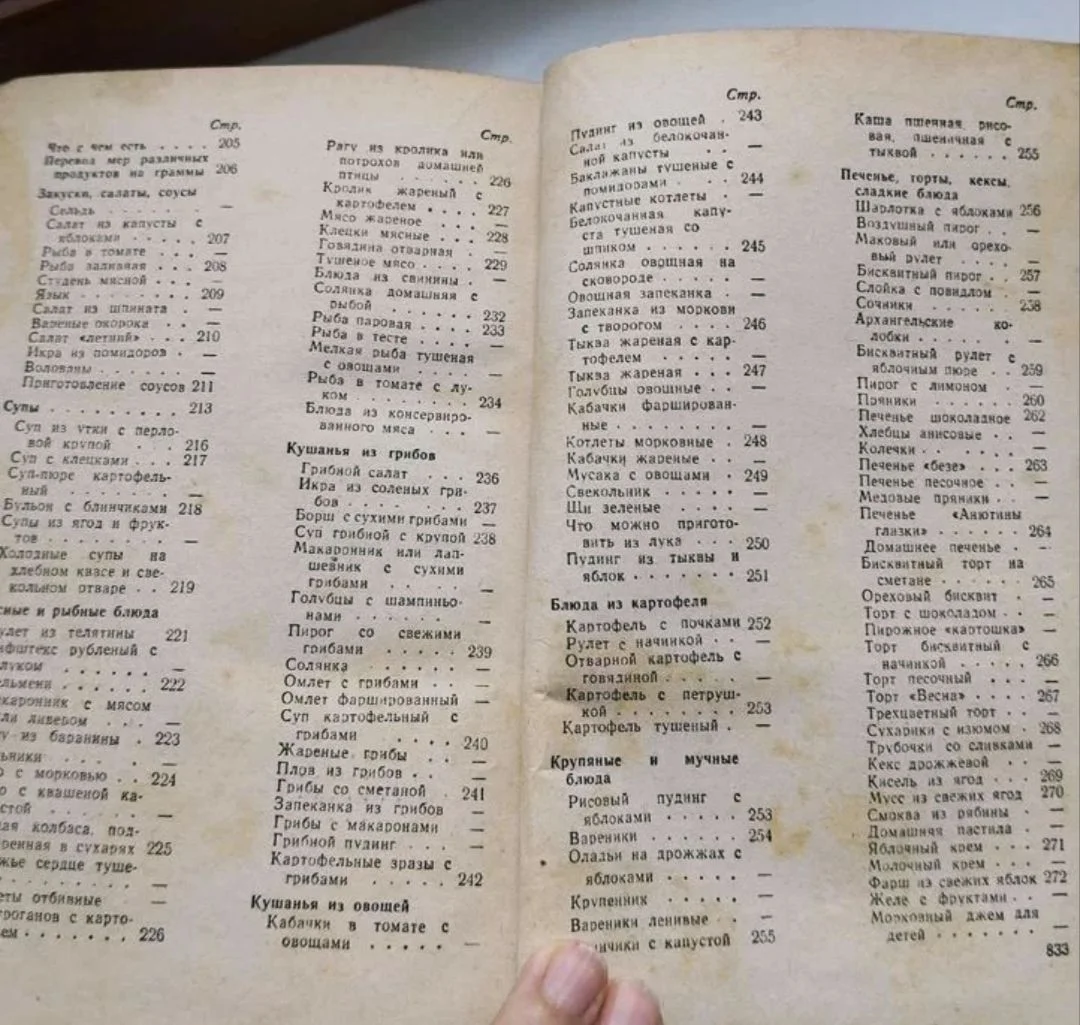 Стр.
Что с чем есть . . . . 205
Перевод мер различных
продуктов на граммы 206
Закуски, салаты, соусы
Сельдь . . . . . . . —
Салат из капусты с
яблоками . . . . . 207
Рыба в томате . . . . —
Рыба заливная . . . 208
Студень мясной . . . —
Язык . . . . . . . . 209
Салат из шпината . —
Вареные окорока . . —
Салат «летний» . . . 210
Икра из помидоров . —
Волованы . . . . . . —
Приготовление соусов 211
Супы . . . . . . . . . 213
Суп из утки с перло-
вой крупой . . . . 216
Суп с клецками . . . 217
Суп-пюре картофель-
ный . . . . . . . —
Бульон с блинчиками 218
Супы из ягод и фрук-
тов . . . . . . . . —
Холодные супы на
хлебном квасе и све-
кольном отваре . . 219
сные и рыбные блюда
улет из телятины 221
фштекс рубленый с
луком . . . . . . —
льмени . . . . . . 222
каронник с мясом
ли ливером . . . —
у из баранины . 223
ьники . . . . —
о с морковью . . 224
о с квашеной ка-
стой . . . . . . —
ая колбаса, под-
ренная в сухарях 225
жье сердце туше-
. . . . . . . . —
еты отбивные —
троганов с карто-
ем . . . . . . . 226
Стр.
Рагу из кролика или
потрохов домашней
птицы . . . . . . 226
Кролик жареный с
картофелем . . . . 227
Мясо жареное . . . —
Клецки мясные . . . 228
Говядина отварная . —
Тушеное мясо . . . . 229
Блюда из свинины . —
Солянка домашняя с
рыбой . . . . . . 232
Рыба паровая . . . . 233
Рыба в тесте . . . . —
Мелкая рыба тушеная
с овощами . . . . —
Рыба в томате с лу-
ком . . . . . . . 234
Блюда из консервиро-
ванного мяса . . . —
Кушанья из грибов
Грибной салат . . . 236
Икра из соленых гри-
бов . . . . . . . 237
Борш с сухими грибами —
Суп грибной с крупой 238
Макаронник или лап-
шевник с сухими
грибами . . . —
Голубцы с шампиньо-
нами . . . . . . —
Пирог со свежими
грибами . . . . . 239
Солянка . . . . . . —
Омлет с грибами . . —
Омлет фаршированный —
Суп картофельный с
грибами . . . . 240
Жареные грибы . . —
Плов из грибов . . —
Грибы со сметаной . 241
Запеканка из грибов —
Грибы с макаронами —
Грибной пудинг . . —
Картофельные зразы с
грибами . . . . . 242
Кушанья из овощей
Кабачки в томате с
овощами . . . . . —
Стр.
Пудинг из овощей . 243
Салат из белокочан-
ной капусты . . —
Баклажаны тушеные с
помидорами . . . 244
Капустные котлеты . —
Белокочанная капу-
ста тушеная со
шпиком . . . . . . 245
Солянка овощная на
сковороде . . . . —
Овощная запеканка . —
Запеканка из моркови
с творогом . . . . 246
Тыква жареная с кар-
тофелем . . . . . —
Тыква жареная . . . 247
Голубцы овощные . . —
Кабачки фарширован-
ные . . . . . . . —
Котлеты морковные . 248
Кабачки жареные . . —
Мусака с овощами . 249
Свекольник . . . . . —
Щи зеленые . . . . —
Что можно пригото-
вить из лука . . . 250
Пудинг из тыквы и
яблок . . . . . . . 251
Блюда из картофеля
Картофель с почками 252
Рулет с начинкой . . —
Отварной картофель с
говядиной . . . . . —
Картофель с петруш-
кой . . . . . . . . 253
Картофель тушеный . —
Крупяные и мучные
блюда
Рисовый пудинг с
яблоками . . . . . 253
Вареники . . . . . . 254
Оладьи на дрожжах с
яблоками . . . . . —
Крупенник . . . . . —
Вареники ленивые . . —
инчики с капустой 255
Стр.
Каша пшенная, рисо-
вая, пшеничная с
тыквой . . . . . . 255
Печенье, торты, кексы,
сладкие блюда
Шарлотка с яблоками 256
Воздушный пирог . . —
Маковый или орехо-
вый рулет . . . . —
Бисквитный пирог . . 257
Слойка с повидлом . —
Сочники . . . . . . 258
Архангельские ко-
лобки . . . . . . —
Бисквитный рулет с
яблочным пюре . . 259
Пирог с лимоном . —
Пряники . . . . . . 260
Печенье шоколадное 262
Хлебцы анисовые . . —
Колечки . . . . . . —
Печенье «безе» . . . 263
Печенье песочное . . —
Медовые пряники . . —
Печенье «Анютины
глазки» . . . . . . 264
Домашнее печенье . —
Бисквитный торт на
сметане . . . . . . 265
Ореховый бисквит . —
Торт с шоколадом . . —
Пирожное «картошка» —
Торт бисквитный с
начинкой . . . . . 266
Торт песочный . . . —
Торт «Весна» . . . . 267
Трехцветный торт . . —
Сухарики с изюмом . 268
Трубочки со сливками —
Кекс дрожжевой . . —
Кисель из ягод . . . 269
Мусс из свежих ягод 270
Смоква из рябины . —
Домашняя пастила . —
Яблочный крем . . . 271
Молочный крем . . . —
Фарш из свежих яблок 272
Желе с фруктами . . —
Морковный джем для
детей . . . . . . . —
833